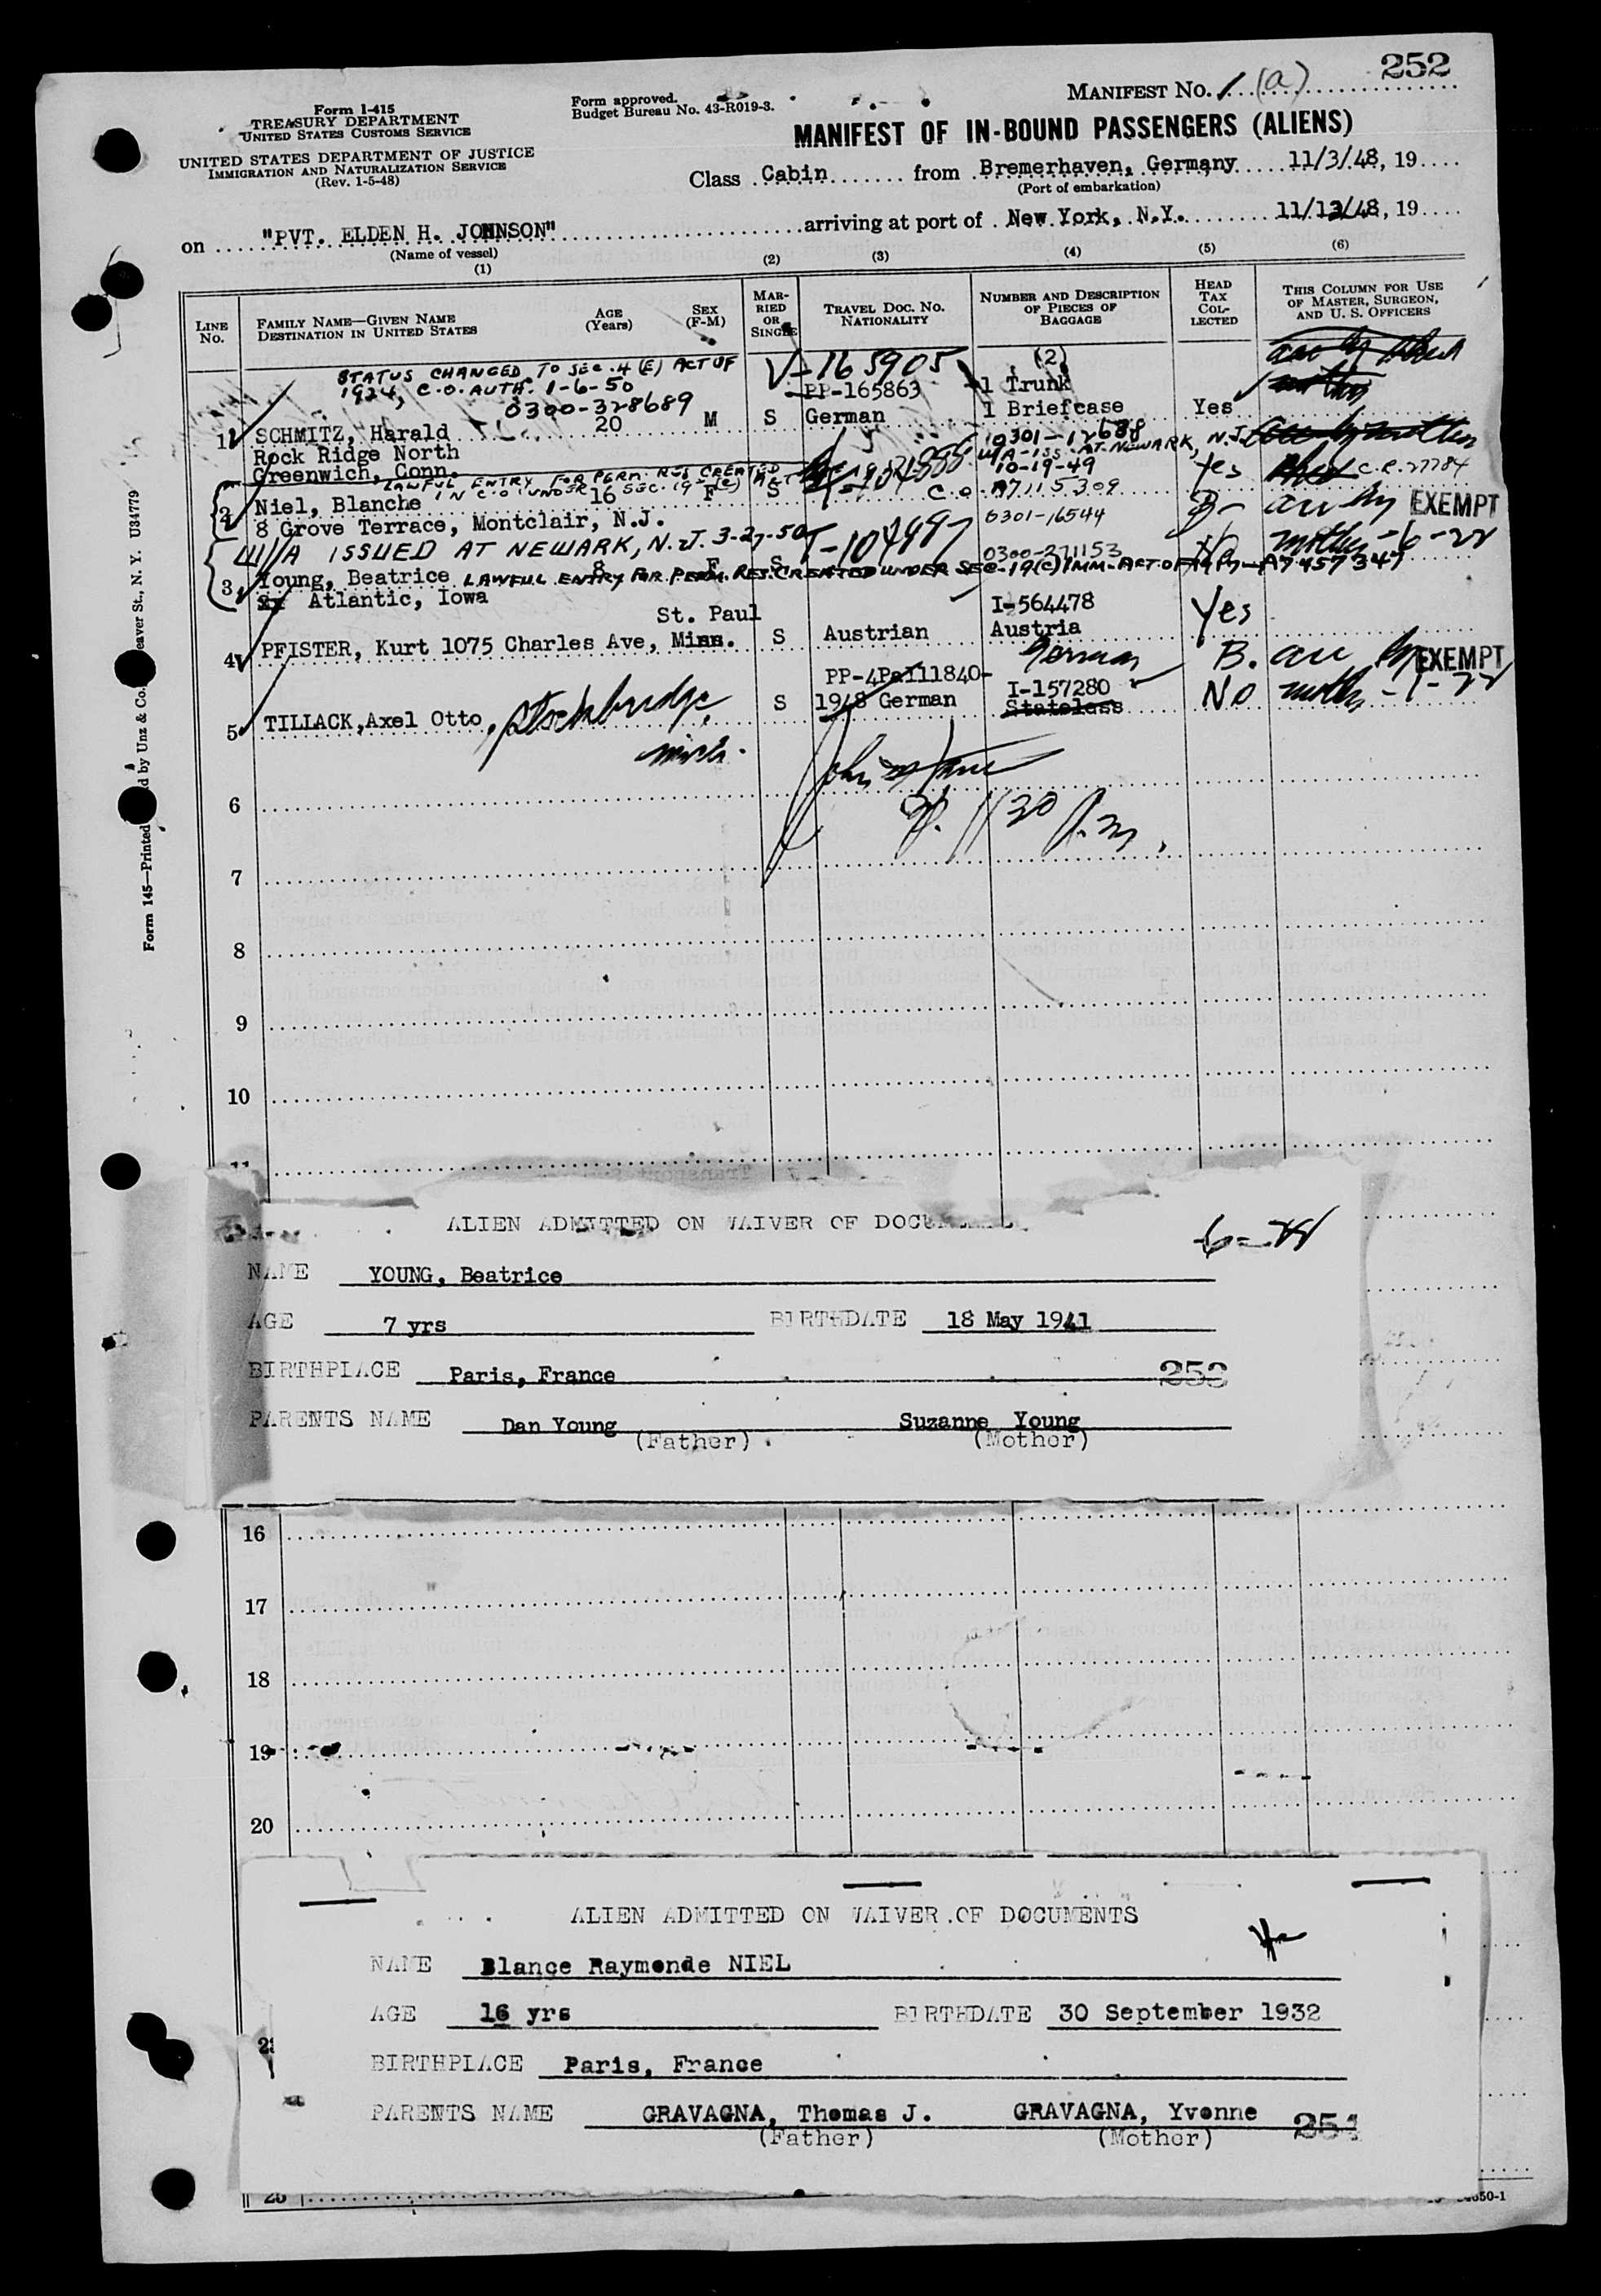 252
Form I-415
TREASURY DEPARTMENT
UNITED STATES CUSTOMS SERVICE
UNITED STATES DEPARTMENT OF JUSTICE
IMMIGRATION AND NATURALIZATION SERVICE
(Rev. 1-5-48)
Form approved.
Budget Bureau No. 43-R019-3.
MANIFEST NO. 1 (a)
MANIFEST OF IN-BOUND PASSENGERS (ALIENS)
Class Cabin from Bremerhaven, Germany 11/3/48, 19
(Port of embarkation)
on "PVT. ELDEN H. JOHNSON" arriving at port of New York, N.Y. 11/13/48, 19
(Name of vessel)
(1) (2) (3) (4) (5) (6)
LINE No.
FAMILY NAME—GIVEN NAME
DESTINATION IN UNITED STATES
AGE (Years)
SEX (F-M)
MARRIED OR SINGLE
TRAVEL DOC. NO. NATIONALITY
NUMBER AND DESCRIPTION OF PIECES OF BAGGAGE
HEAD TAX COLLECTED
THIS COLUMN FOR USE OF MASTER, SURGEON, AND U. S. OFFICERS
STATUS CHANGED TO SEC. 4 (E) ACT OF
1924, C.O. AUTH. 1-6-50
V-165905 (2)
PP-165863 1 Trunk
0300-328689
1 SCHMITZ, Harald 20 M S German 1 Briefcase Yes
Rock Ridge North
Greenwich, Conn.
0301-12688
W/A-ISS. AT NEWARK, N.J.
10-19-49
LAWFUL ENTRY FOR PERM. RES CREATED
IN C.O. UNDER SEC. 19 (c) ACT
Yes C.R. 27784
2 Niel, Blanche 16 F S C.O. A7115309
8 Grove Terrace, Montclair, N.J. 0301-16544 EXEMPT
W/A ISSUED AT NEWARK, N.J. 3-27-50 T-104497
mother - 6-22
0300-271153
3 Young, Beatrice 8 F S LAWFUL ENTRY FOR PERM. RES. CREATED UNDER SEC-19(c) IMM-ACT OF A7457347
Atlantic, Iowa
St. Paul I-564478 Yes
4 PFISTER, Kurt 1075 Charles Ave, Minn. S Austrian Austria
German B. EXEMPT
PP-4Pa111840- I-157280
5 TILLACK, Axel Otto, Stockbridge, Mich. S 1948 German Stateless No
11 30 P.M.
6
7
8
9
10
11
ALIEN ADMITTED ON WAIVER OF DOCUMENTS
NAME YOUNG, Beatrice
AGE 7 yrs BIRTHDATE 18 May 1941
BIRTHPLACE Paris, France 253
PARENTS NAME Dan Young Suzanne Young
(Father) (Mother)
16
17
18
19
20
ALIEN ADMITTED ON WAIVER OF DOCUMENTS
NAME Blance Raymonde NIEL
AGE 16 yrs BIRTHDATE 30 September 1932
BIRTHPLACE Paris, France
PARENTS NAME GRAVAGNA, Thomas J. GRAVAGNA, Yvonne 254
(Father) (Mother)
Form 145—Printed by Unz & Co. Beaver St., N. Y. U34779